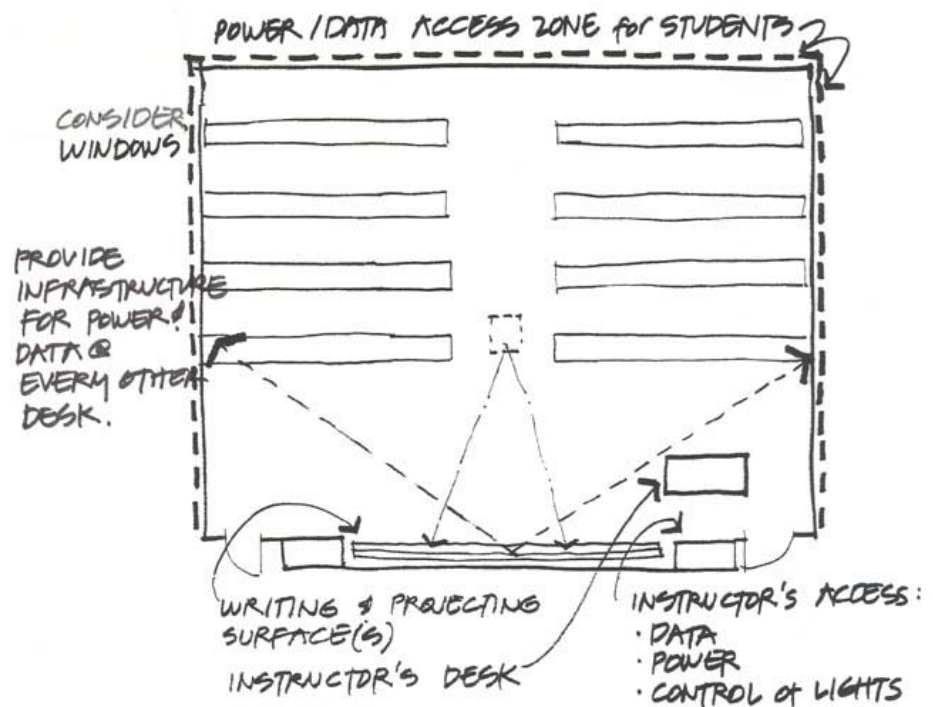 POWER / DATA ACCESS ZONE for STUDENTS
CONSIDER
WINDOWS
PROVIDE
INFRASTRUCTURE
FOR POWER &
DATA @
EVERY OTHER
DESK.
WRITING & PROJECTING
SURFACE(S)
INSTRUCTOR'S DESK
INSTRUCTOR'S ACCESS:
· DATA
· POWER
· CONTROL of LIGHTS